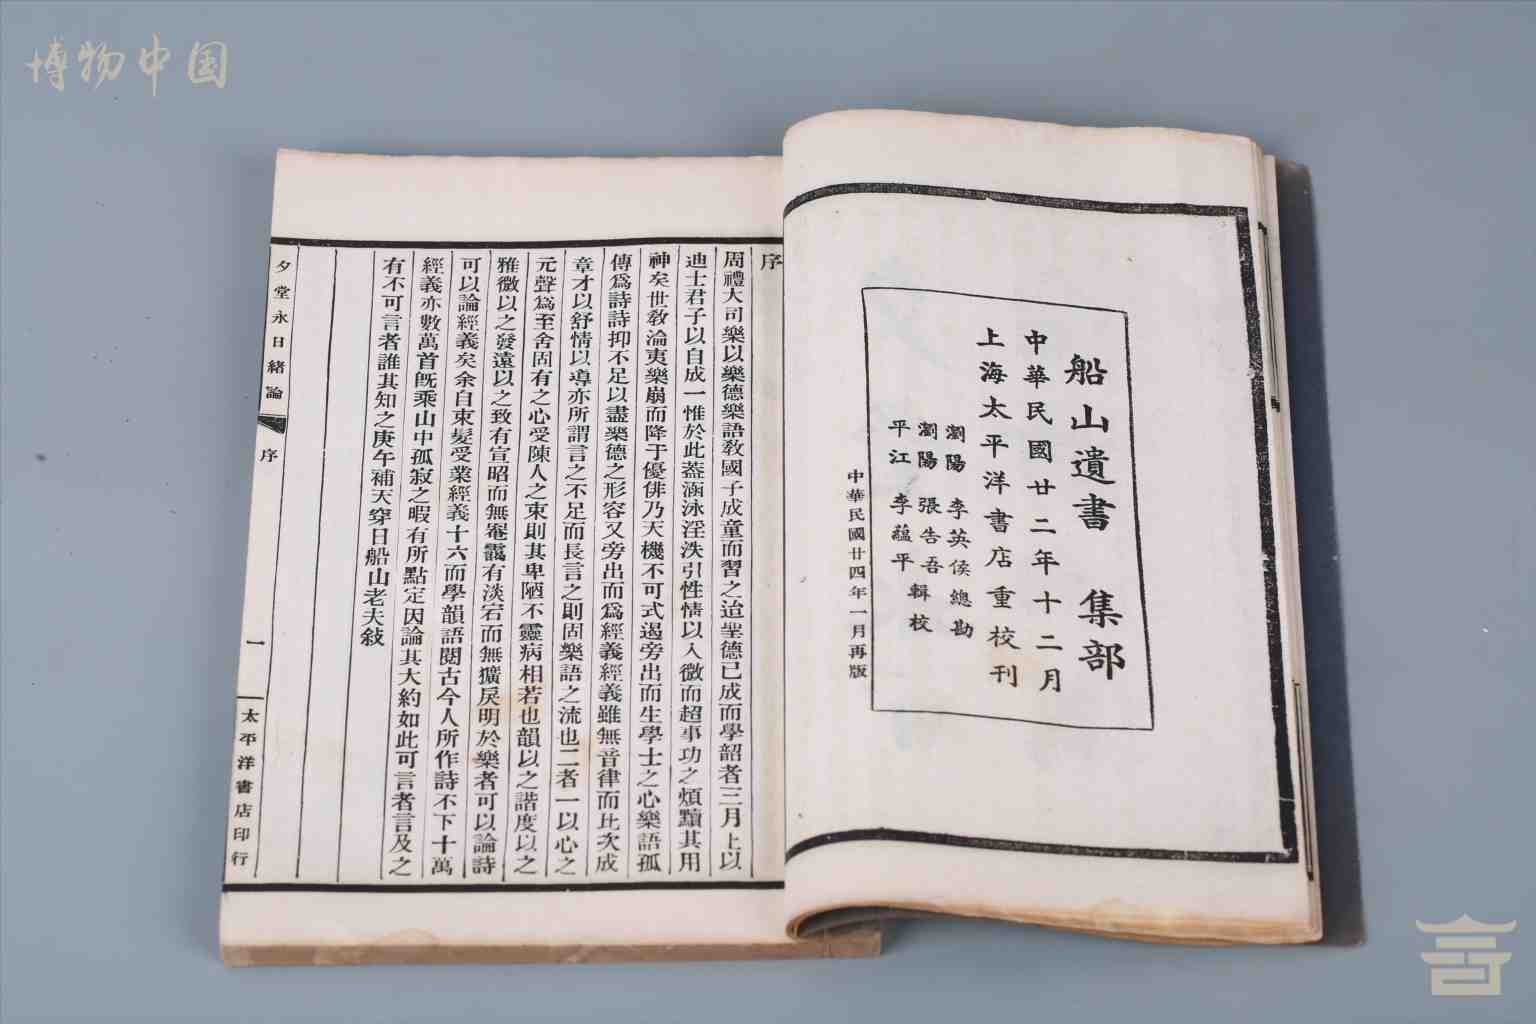 博物中国
船山遺書 集部
中華民國廿二年十二月
上海太平洋書店重校刊
瀏陽 李英侯總勘
瀏陽 張告吾輯校
平江 李蘊平
中華民國廿四年一月再版
序
周禮大司樂以樂德樂語敎國子成童而習之迨聖德已成而學韶者三月上以
迪士君子以自成一惟於此葢涵泳淫泆引性情以入微而超事功之煩黷其用
神矣世敎淪夷樂崩而降于優俳乃天機不可式遏旁出而生學士之心樂語孤
傳爲詩詩抑不足以盡樂德之形容又旁出而爲經義經義雖無音律而比次成
章才以舒情以導亦所謂言之不足而長言之則固樂語之流也二者一以心之
元聲爲至舍固有之心受陳人之束則其卑陋不靈病相若也韻以之諧度以之
雅微以之發遠以之致有宣昭而無罨靄有淡宕而無獷戾明於樂者可以論詩
可以論經義矣余自束髮受業經義十六而學韻語閱古今人所作詩不下十萬
經義亦數萬首旣乘山中孤寂之暇有所點定因論其大約如此可言者言及之
有不可言者誰其知之庚午補天穿日船山老夫敍
夕堂永日緒論
序
一
太平洋書店印行